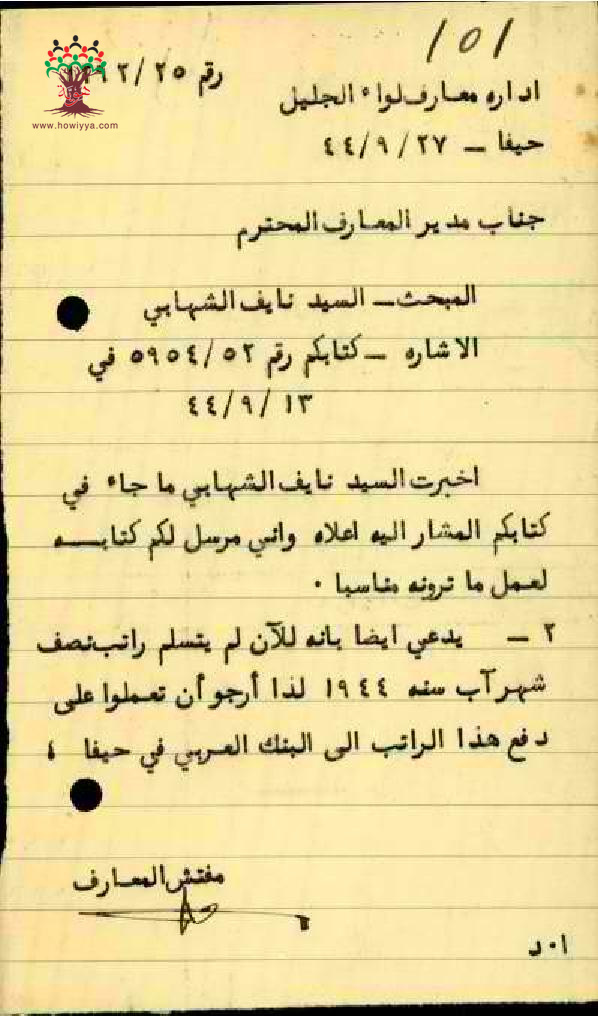 / ٥ /
رقم ٢٥/
اداره معارف لواء الجليل
www.howiyya.com
حيفا – ٢٧/٩/٤٤
جناب مدير المعارف المحترم
المبحث – السيد نايف الشهابي
الاشاره – كتابكم رقم ٥٩٥٤/٥٢ في
١٣/٩/٤٤
اخبرت السيد نايف الشهابي ما جاء في
كتابكم المشار اليه اعلاه واني مرسل لكم كتابـــه
لعمل ما ترونه مناسبا ٠
٢ – يدعي ايضا بانه للآن لم يتسلم راتب نصف
شهر آب سنه ١٩٤٤ لذا أرجو أن تعملوا على
دفع هذا الراتب الى البنك العربي في حيفا ،
مفتش المعارف
ا٠د